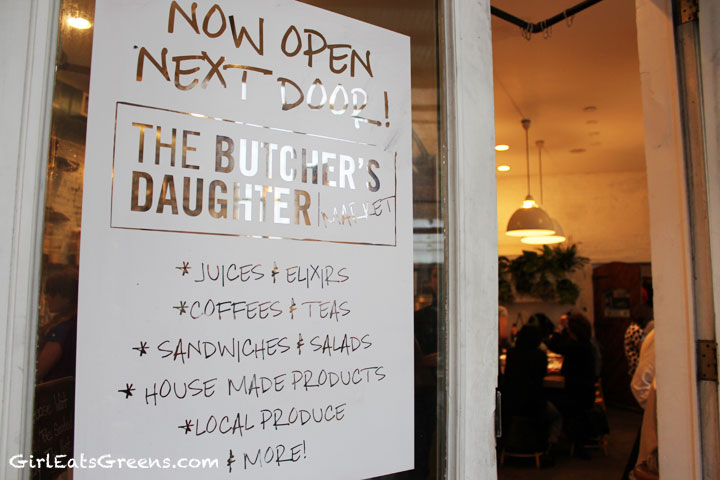 NOW OPEN
NEXT DOOR!
THE BUTCHER'S
DAUGHTER | MARKET
*JUICES & ELIXIRS
*COFFEES & TEAS
* SANDWICHES & SALADS
* HOUSE MADE PRODUCTS
*LOCAL PRODUCE
& MORE!
GirlEatsGreens.com